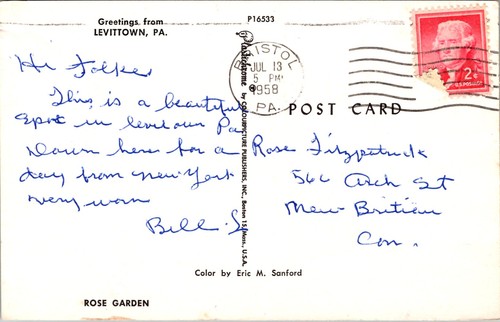 Greetings from
LEVITTOWN, PA.
P16533
Hi Folkes
This is a beautiful
spot in levitown Pa
Down here for a
day from new York
very worm
Bill S
Plastichrome ® by COLOURPICTURE PUBLISHERS, INC., Boston 15, Mass., U.S.A.
BRISTOL
JUL 13
5 PM
1958
PA.
2¢
U.S. POSTAGE
POST CARD
Rose Fitzpatrick
566 Arch St
New Britian
Con.
Color by Eric M. Sanford
ROSE GARDEN